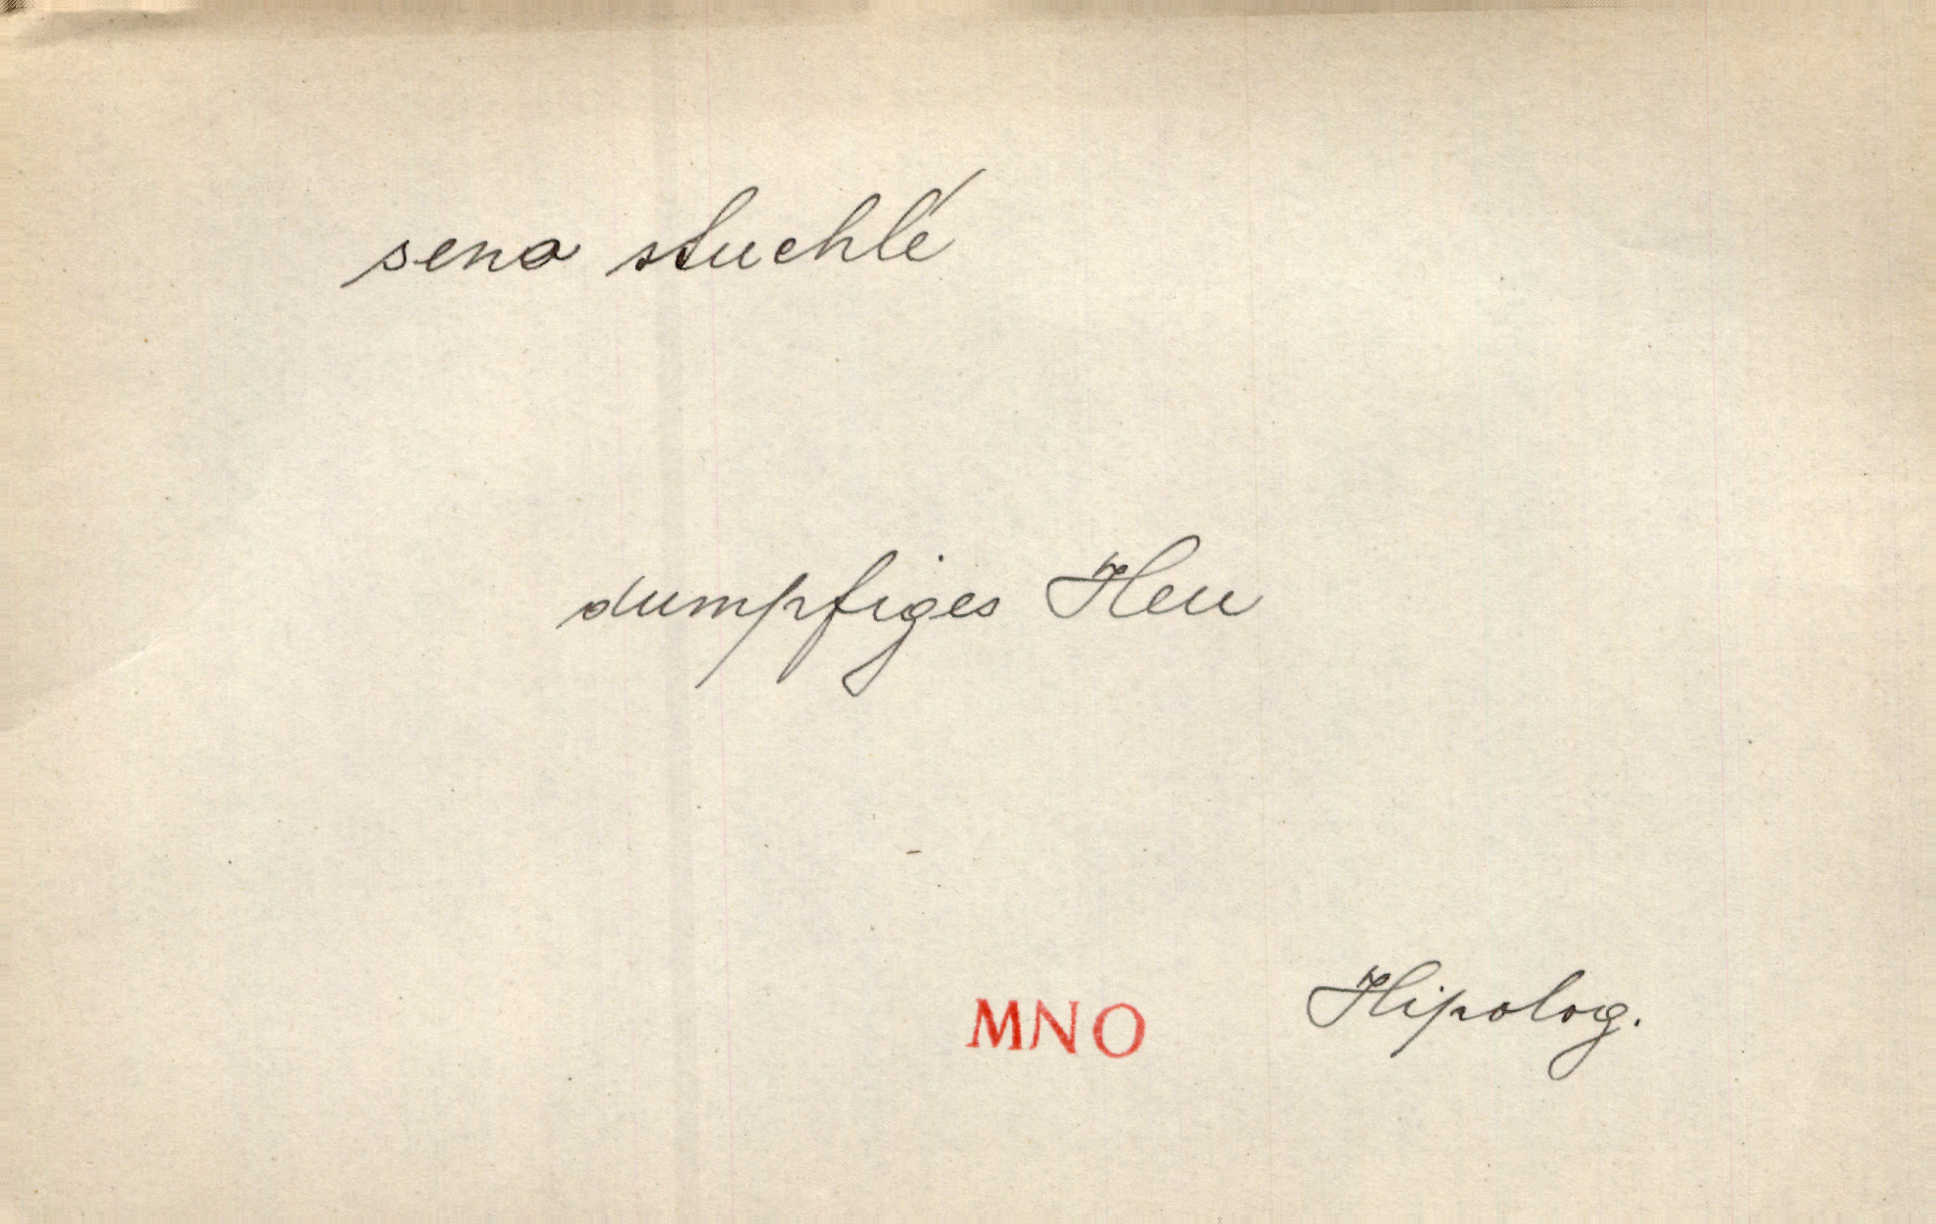 seno stuchlé
dumpfiges Heu
MNO Hipolog.